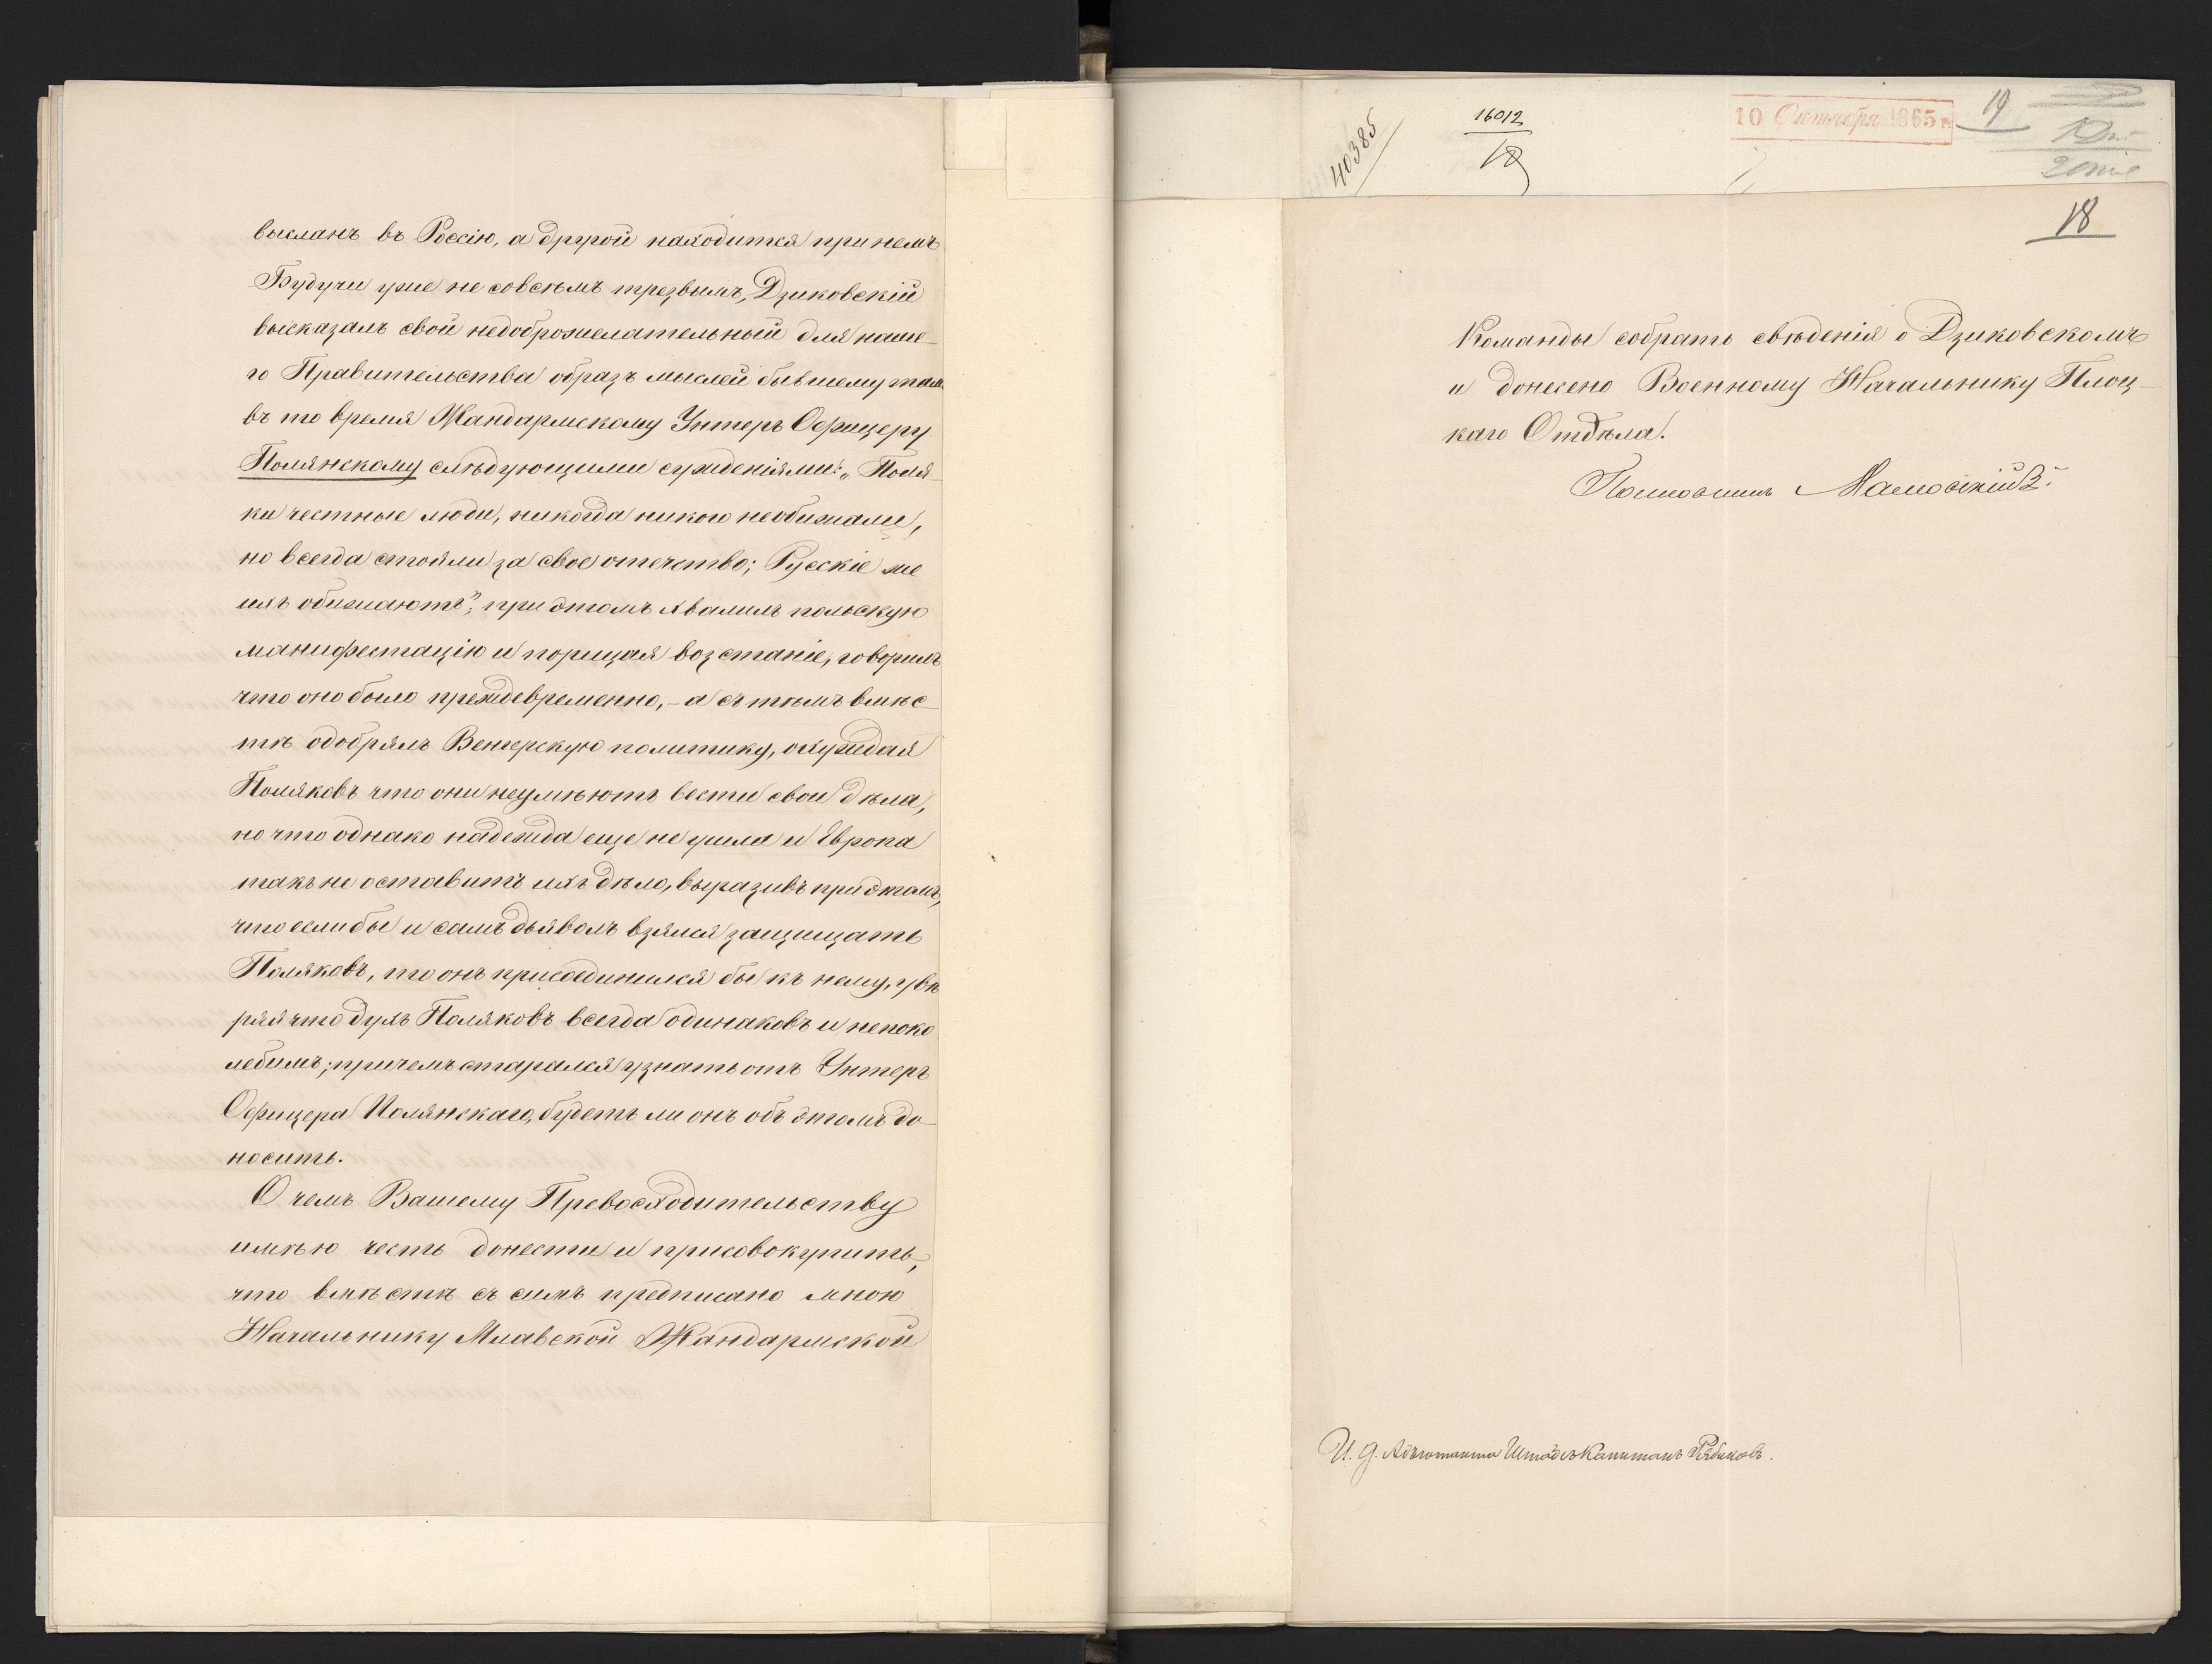 высланъ въ Россію, а другой находится при немъ
Будучи уже не совсѣмъ трезвымъ, Дзиковскій
высказалъ свой недоброжелательный для наше-
го Правительства образъ мыслей бывшему там
въ то время Жандармскому Унтеръ Офицеру
Полянскому слѣдующими сужденіями: „Поля-
ки честные люди, никогда никого необижали,
но всегда стояли за свое отечество; Русскіе же
ихъ обижаютъ”; при этомъ хвалилъ польскую
манифестацію и порицая возстаніе, говорилъ
что оно было преждевременно, - а съ тѣмъ вмѣс-
тѣ одобрялъ Венгерскую политику, осуждая
Поляковъ что они неумѣютъ вести свои дѣла,
но что однако надежда еще не ушла и Европа
такъ не оставитъ ихъ дѣло, выразивъ при этомъ,
что если бы и самъ дьяволъ взялся защищать
Поляковъ, то онъ присоединился бы къ нему, увѣ
ряя что духъ Поляковъ всегда одинаковъ и непоко
лебимъ; причемъ старался узнать отъ Унтеръ
Офицера Полянскаго, будетъ ли онъ объ этомъ до-
носить.
О чемъ Вашему Превосходительству
имѣю честь донести и присовокупить,
что вмѣстѣ съ симъ предписано мною
Начальнику Млавской Жандармской
40385
16012
18
10 Октября 1865 г.
19
18
Команды собрать свѣденія о Дзиковскомъ
и донесено Военному Начальнику Плоц-
каго Отдѣла.
Полковникъ
И. д. Адъютанта Штабсъ Капитанъ Рябиковъ.